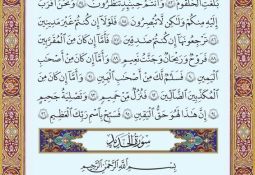 بَلَغَتِ ٱلْحُلْقُومَ ٨٣ وَأَنتُمْ حِينَئِذٍ تَنظُرُونَ ٨٤ وَنَحْنُ أَقْرَبُ
إِلَيْهِ مِنكُمْ وَلَٰكِن لَّا تُبْصِرُونَ ٨٥ فَلَوْلَآ إِن كُنتُمْ غَيْرَ مَدِينِينَ
٨٦ تَرْجِعُونَهَآ إِن كُنتُمْ صَٰدِقِينَ ٨٧ فَأَمَّآ إِن كَانَ مِنَ ٱلْمُقَرَّبِينَ
٨٨ فَرَوْحٌ وَرَيْحَانٌ وَجَنَّتُ نَعِيمٍ ٨٩ وَأَمَّآ إِن كَانَ مِنْ أَصْحَٰبِ
ٱلْيَمِينِ ٩٠ فَسَلَٰمٌ لَّكَ مِنْ أَصْحَٰبِ ٱلْيَمِينِ ٩١ وَأَمَّآ إِن كَانَ مِنَ
ٱلْمُكَذِّبِينَ ٱلضَّآلِّينَ ٩٢ فَنُزُلٌ مِّنْ حَمِيمٍ ٩٣ وَتَصْلِيَةُ جَحِيمٍ
٩٤ إِنَّ هَٰذَا لَهُوَ حَقُّ ٱلْيَقِينِ ٩٥ فَسَبِّحْ بِٱسْمِ رَبِّكَ ٱلْعَظِيمِ ٩٦
سُورَةُ الحَدِيدِ
بِسْمِ ٱللَّهِ ٱلرَّحْمَٰنِ ٱلرَّحِيمِ